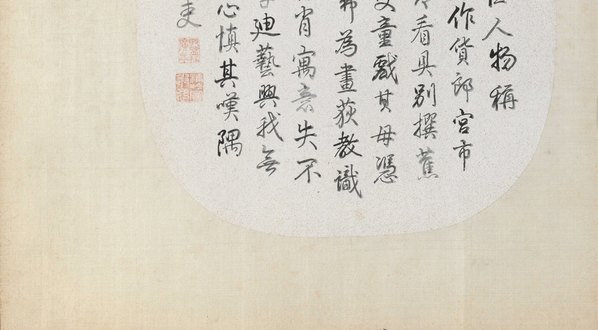 人物稱
作貨郎宮市
看具別撰蕉
童戲其母憑
為畫荻教識
肖寓意失不
迪藝興我無
心慎其嘆隅
吏